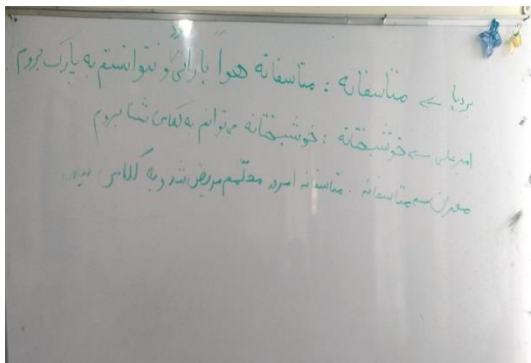 بردیا ← متاسفانه : متاسفانه هوا بارانی و نتوانستم به پارک بروم
امیرعلی ← خوشبختانه : خوشبختانه میتوانم به کلاس شنا بروم
مهران ← متاسفانه : متاسفانه امروز معلمم مریض شد و به کلاس